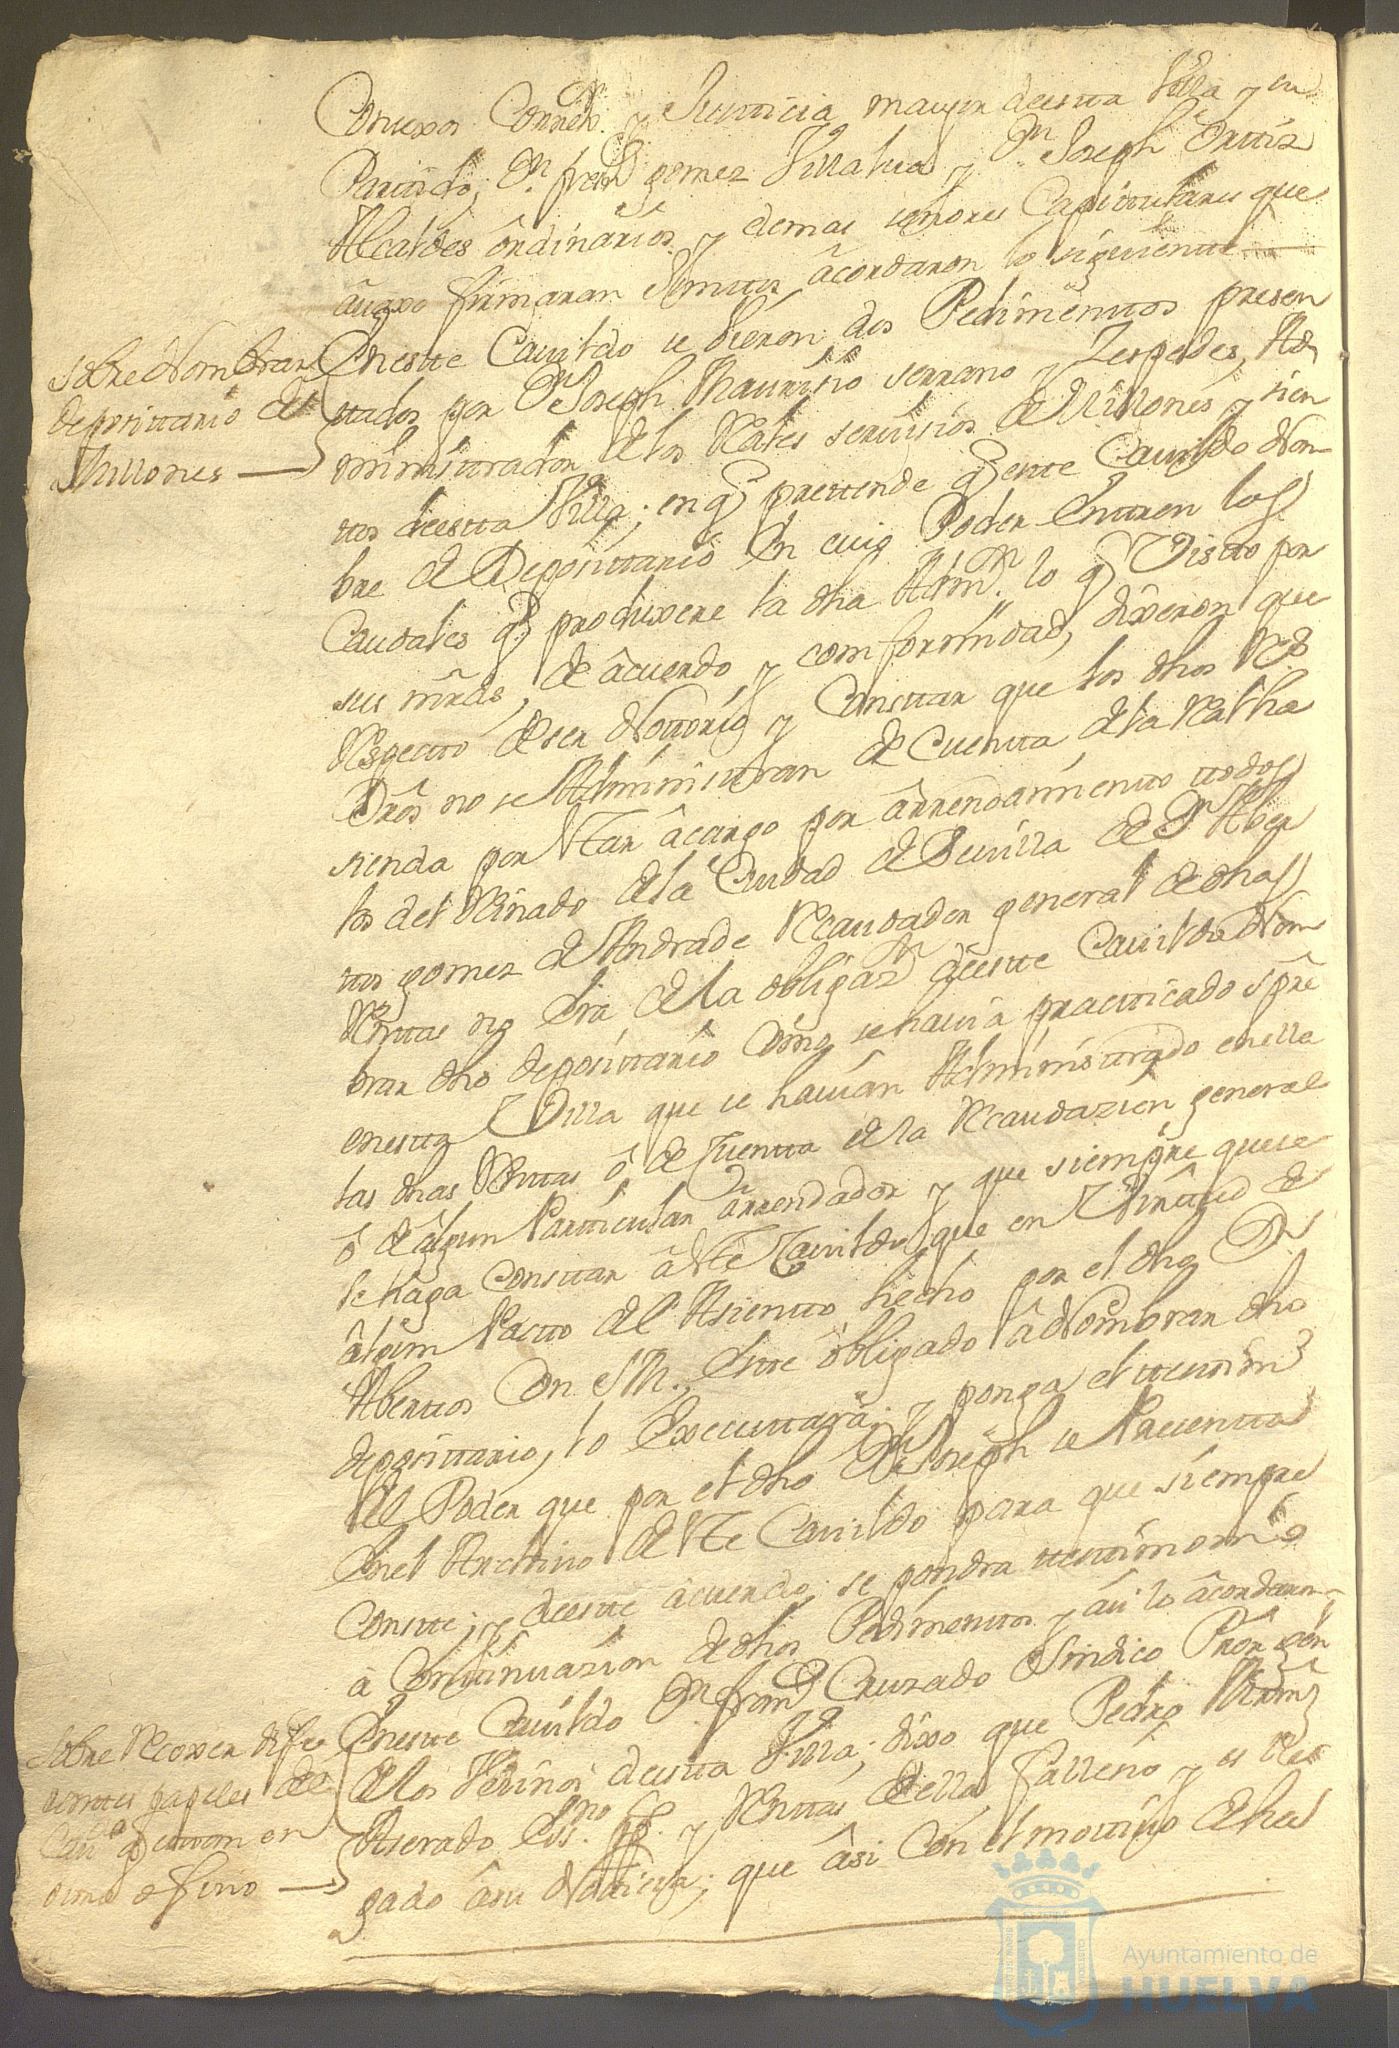 Correxor y Justicia mayor de esta Villa y su
Partido, Dn. franco gomez Villalva y Dn. Joseph Ortiz
Alcaldes ôrdinarios y demas señores Capitulares que
âvaxo firmaran Juntos âcordaron lo siguiente
sobre Nombrar
depossittario de
Millones
Eneste Cavildo se vieron dos Pedimenttos presen
ttados por Dn. Joseph Maurisio serrano y Zespedes, Ad
ministrador de los Reales servisios de Millones y sien
ttos deesta Villa; en q prettende q este Cavildo Nom
bre de Deposittario En cuio Poder Entren los
Caudales q produxere la dha Admn. lo q Visto por
sus mrds, de âcuerdo y comformidad, dixeron que
Respecto de ser Nottorio y Consttar que los dhos Rs
Dros no se Administran de Cuenta dela Rl ha
sienda por Estar âcargo por ârrendamiento ttodos
los del Reinado dela Ciudad de Sevilla de Dn. Alber
tos gomez de Andrade Recaudador general de dhas
Renttas no Era de la obligazn deeste Cavildo Nom
brar dho depossittario Como se havia practticado spre
enestta Villa que se havian Administrado en ella
las dhas Renttas ô de Cuentta de la Recaudazion general
ô de âlgun Partticular ârrendador y que siempre que se
le haga Consttar â Este Cavildo que en Virtud de
âlgun Pactto del Asiento hecho por el dho Dn
Alberttos Con S M., Este ôbligado â Nombrar dho
deposittario, lo Executtara; y ponga el testtimo
del Poder que por el dho Dn Joseph se Presentta
Enel Archivo de Este Cavildo para que siempre
Conste; y deeste acuerdo se pondra testtimonio
â Continuazion de dhos Pedimenttos y âsi lo âcordaron
sobre Recoxer difeô
renttes papeles del
Cavdo q estan en
sima o fino
Eneste Cavildo Dn. franco Cruzado Sindico Pror Gen
de los Vezinos deesta Villa; dixo que Pedro
Aserado Essno. pp. y Renttas de ella fallesio y es lle
gado âsu Notticia; que âsi Con el mottivo de ha
Ayuntamiento de
HUELVA